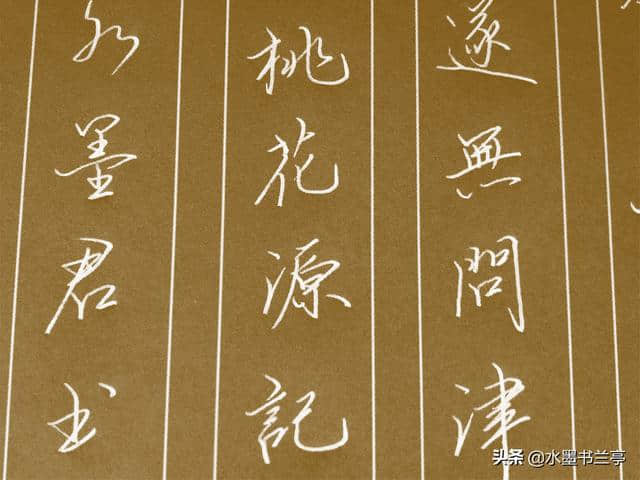 遂無問津
桃花源記
水墨君书
头条 @水墨书兰亭